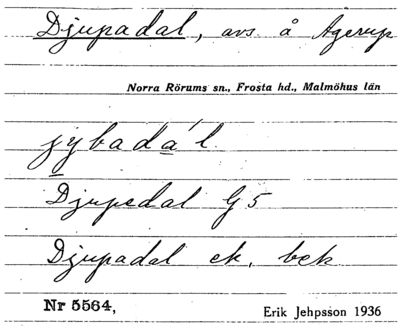 Djupadal, avs å Agerup
Norra Rörums sn., Frosta hd., Malmöhus län
jybadá'l
Djupedal G5
Djupadal ek. bek
Nr 5564,
Erik Jehpsson 1936